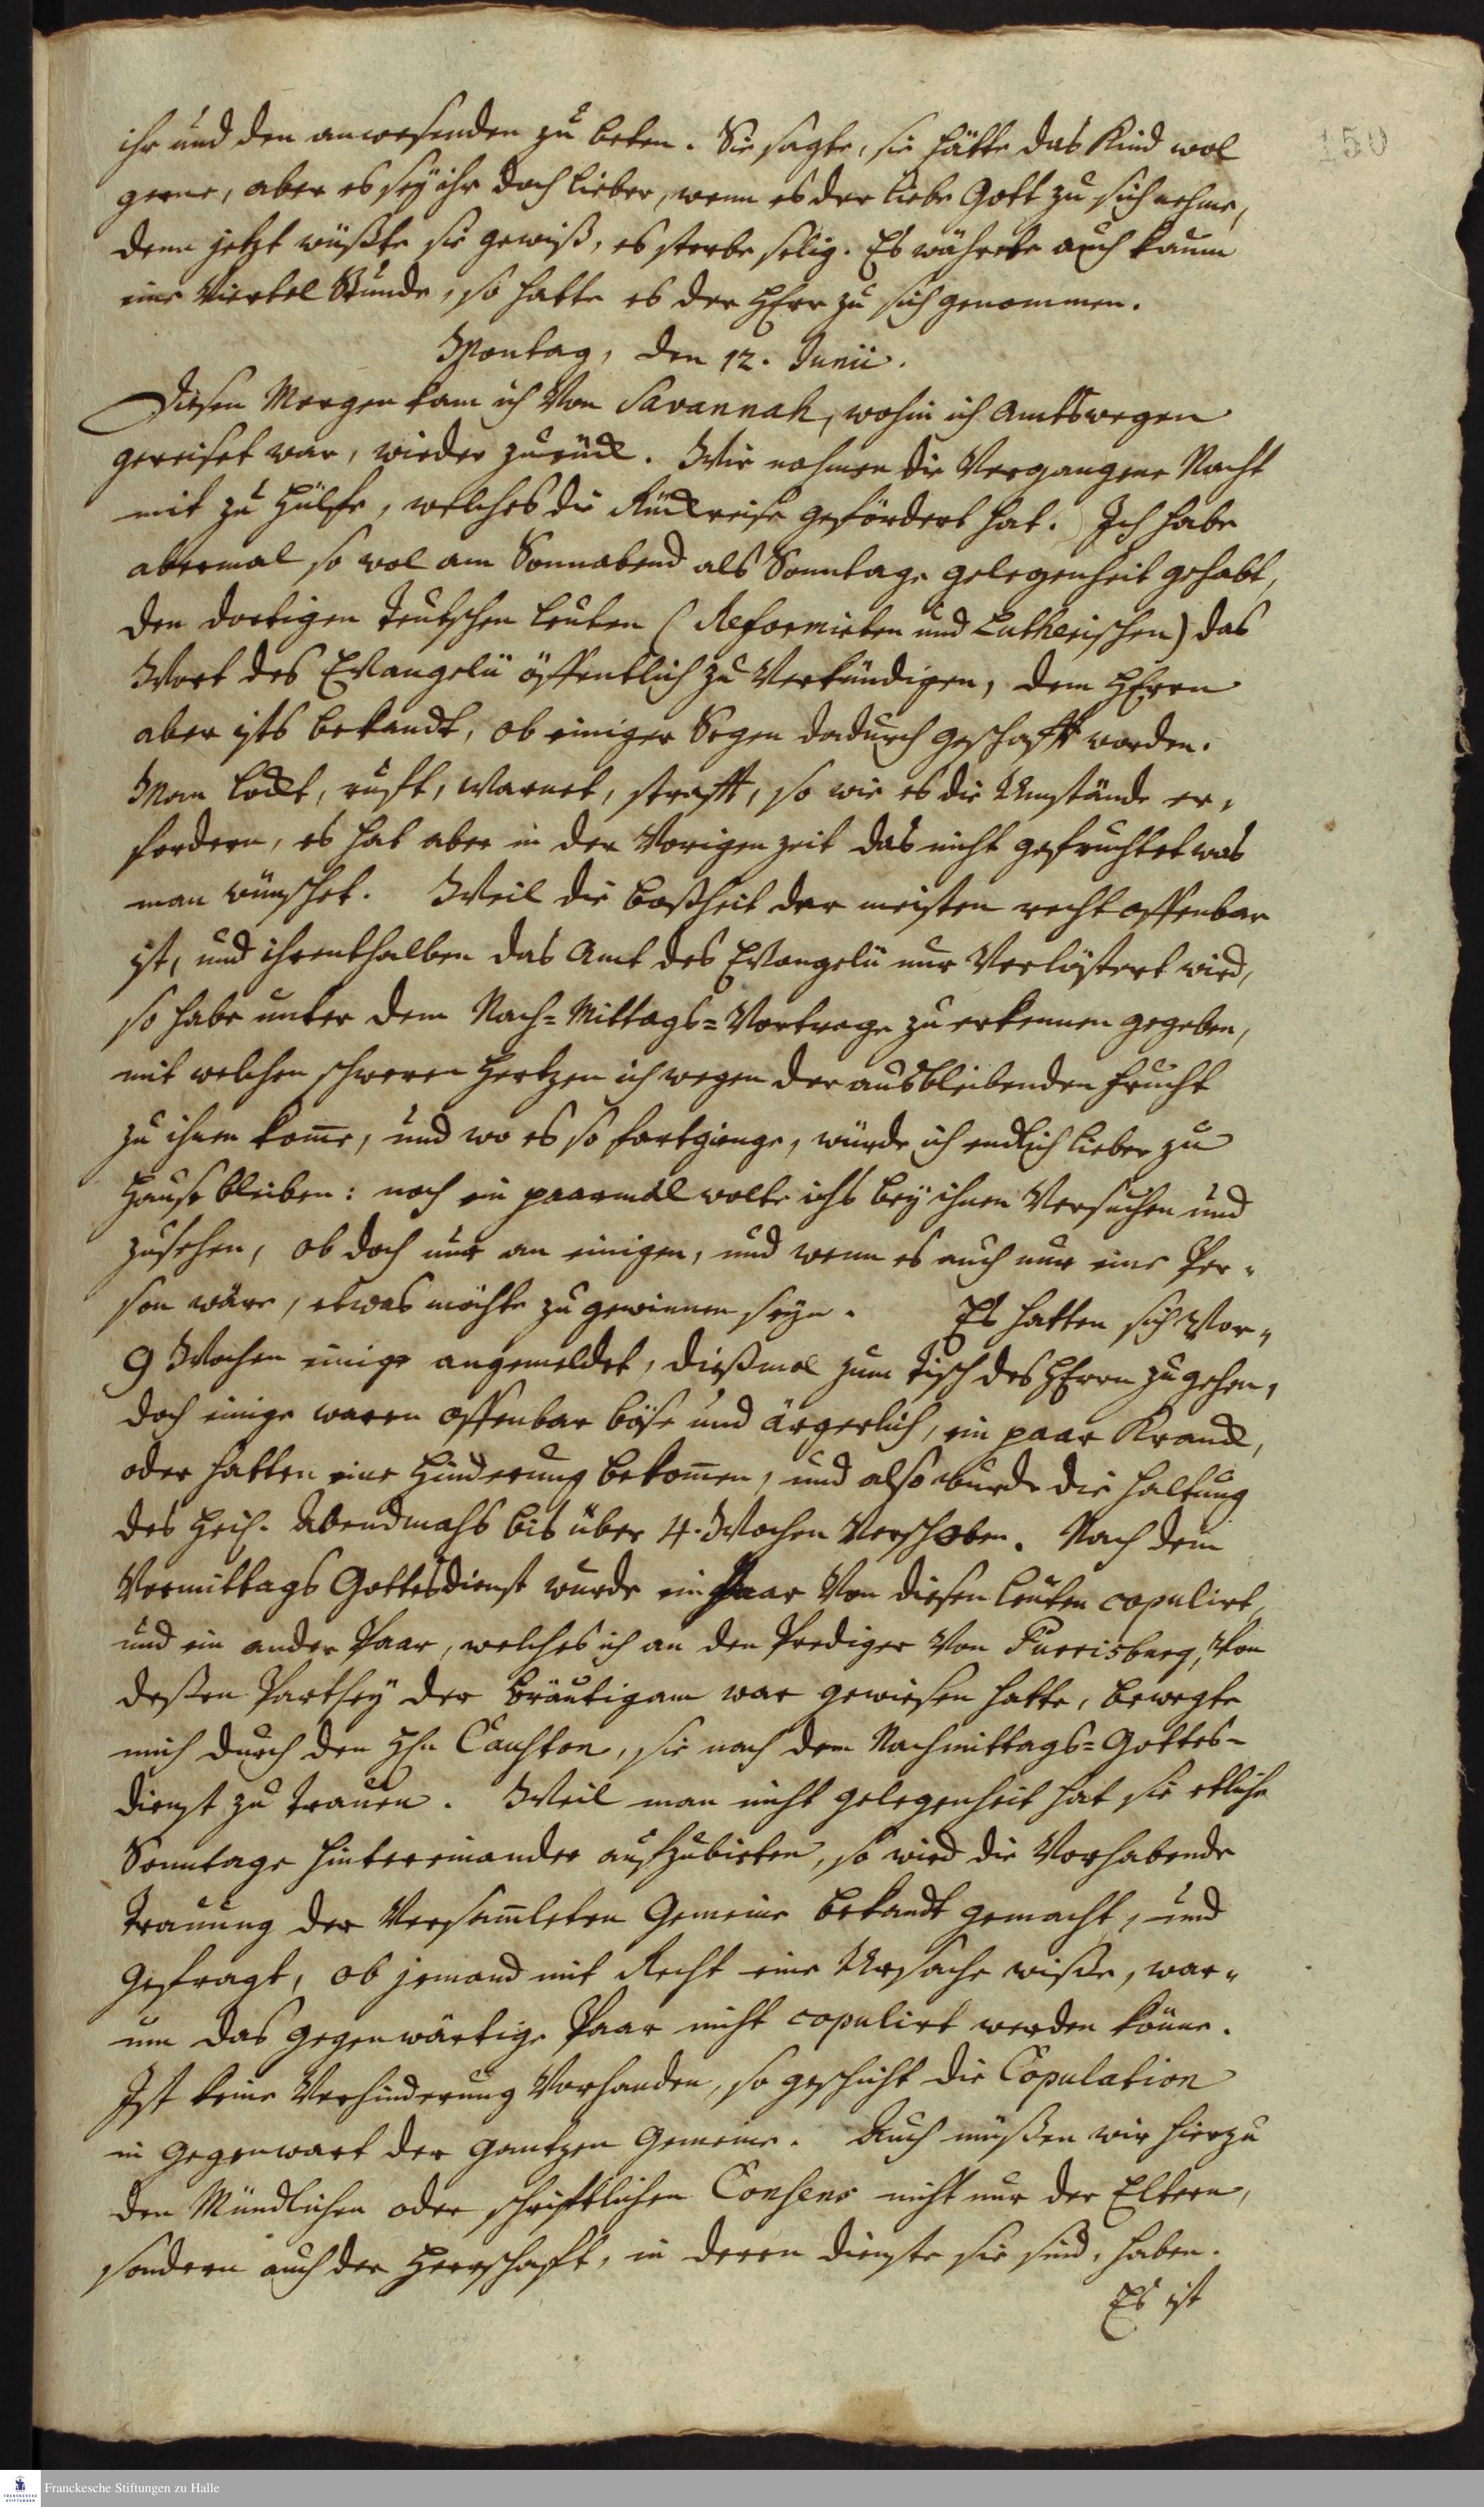 150
ihr und den anwesenden zu beten. Sie sagte, sie hätte das Kind wol
gerne, aber es sey ihr doch lieber, wenn es der liebe Gott zu sich nehme,
denn jetzt wüßte sie gewiß, es sterbe selig. Es währete auch kaum
eine Viertel Stunde, so hatte es der HErr zu sich genommen.
Montag, den 12. Junii.
Diesen Morgen kam ich von Savannah, wohin ich Amtswegen
gereiset war, wieder zurück. Wir nahmen die vergangene Nacht
mit zu Hülfe, welches die Rückreise gefördert hat. Ich habe
abermal so wol am Sonnabend als Sonntage gelegenheit gehabt,
den dortigen teutschen Leuten (Reformirten und Lutherischen) das
Wort des Evangelii öffentlich zu verkündigen, dem HErrn
aber ists bekandt, ob einiger Segen dadurch geschafft worden.
Man lockt, rufft, warnet, strafft, so wie es die Umstände er-
fordern, es hat aber in der vorigen zeit das nicht gefruchtet was
man wünschet. Weil die Boßheit der meisten recht offenbar
ist, und ihrenthalben das Amt des Evangelii nur verlästert wird,
so habe unter dem Nach-Mittags-Vortrage zu erkennen gegeben,
mit welchen schweren Hertzen ich wegen der ausbleibenden Frucht
zu ihnen kom̄e, und wo es so fortgienge, würde ich endlich lieber zu
Hause bleiben: noch ein paarmal wolte ichs bey ihnen versuchen und
zusehen, ob doch nur an einigen, und wenn es auch nur eine Per-
son wäre, etwas möchte zu gewinnen seyn. Es hatten sich vor
9 Wochen einige angemeldet, dießmal zum Tisch des HErrn zu gehen,
doch einige waren offenbar böse und ärgerlich, ein paar Kranck,
oder hatten eine Hinderung bekom̄en, und also wurde die Haltung
des Heil. Abendmahls bis über 4. Wochen verschoben. Nach dem
Vormittags Gottesdienst wurde ein Paar von diesen Leuten copulirt,
und ein ander Paar, welches ich an den Prediger von Purrisburg, von
deßen Parthey der Bräutigam war gewiesen hatte, bewegte
mich durch den Hn Causton, sie nach dem Nachmittags-Gottes-
dienst zu trauen. Weil man nicht gelegenheit hat sie etliche
Sonntage hintereinander aufzubieten, so wird die vorhabende
Trauung der versam̄leten Gemeine bekandt gemacht, und
gefragt, ob jemand mit Recht eine Ursache wiße, war-
um das gegenwärtige Paar nicht copulirt werden könne.
Ist keine Verhinderung vorhanden, so geschicht die Copulation
in Gegenwart der gantzen Gemeine. Auch müßen wir hierzu
den Mündlichen oder schrifftlichen Consens nicht nur der Eltern,
sondern auch der Herrschafft, in deren Dienste sie sind, haben.
Es ist
FRANCKESCHE STIFTUNGEN
Franckesche Stiftungen zu Halle